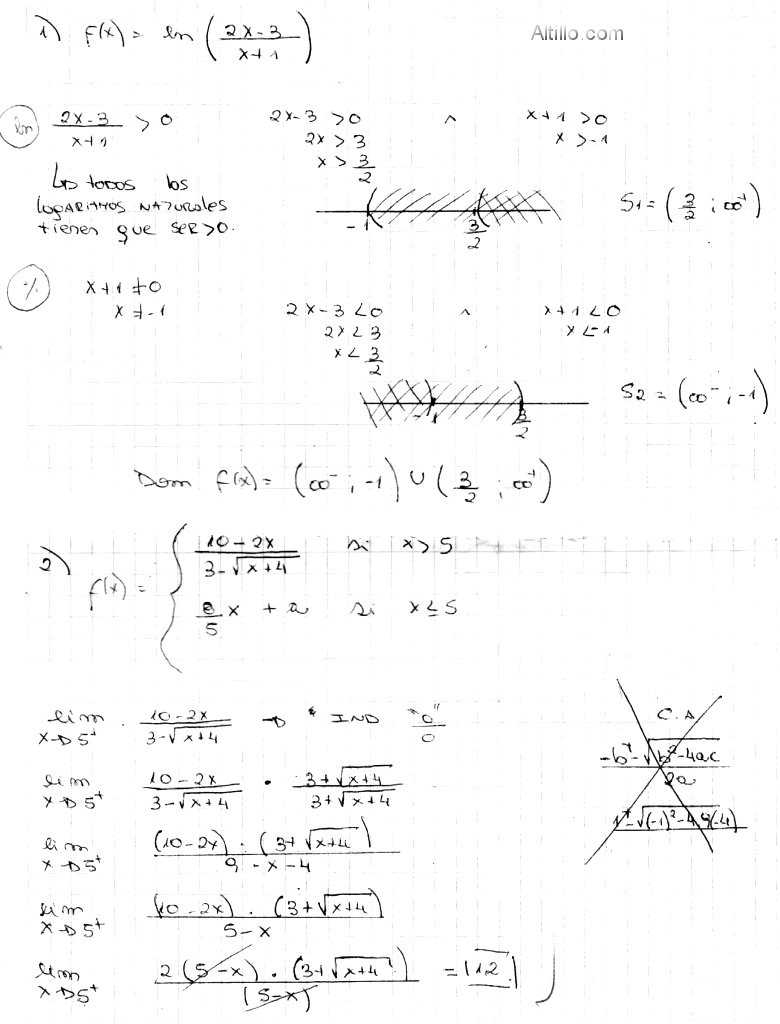 1) f(x) = ln (2x-3 / x+1) Altillo.com
ln 2x-3 / x+1 > 0 2x-3 > 0 ^ x+1 > 0
2x > 3 x > -1
x > 3/2
↳ todos los
logaritmos naturales
tienen que ser > 0.
-1 3/2 S1 = (3/2 ; ∞⁺)
% x+1 ≠ 0
x ≠ -1
2x-3 < 0 ^ x+1 < 0
2x < 3 x < -1
x < 3/2
-1 3/2 S2 = (∞⁻ ; -1)
Dom f(x) = (∞⁻ ; -1) ∪ (3/2 ; ∞⁺)
2) f(x) = { 10-2x / 3-√(x+4) si x > 5
8/5 x + a si x ≤ 5
lim x→5⁺ 10-2x / 3-√(x+4) → IND "0"/0
lim x→5⁺ 10-2x / 3-√(x+4) · 3+√(x+4) / 3+√(x+4)
lim x→5⁺ (10-2x) · (3+√(x+4)) / 9-x-4
lim x→5⁺ (10-2x) · (3+√(x+4)) / 5-x
lim x→5⁺ 2(5-x) · (3+√(x+4)) / (5-x) = 12
C.A
-b ± √(b²-4ac) / 2a